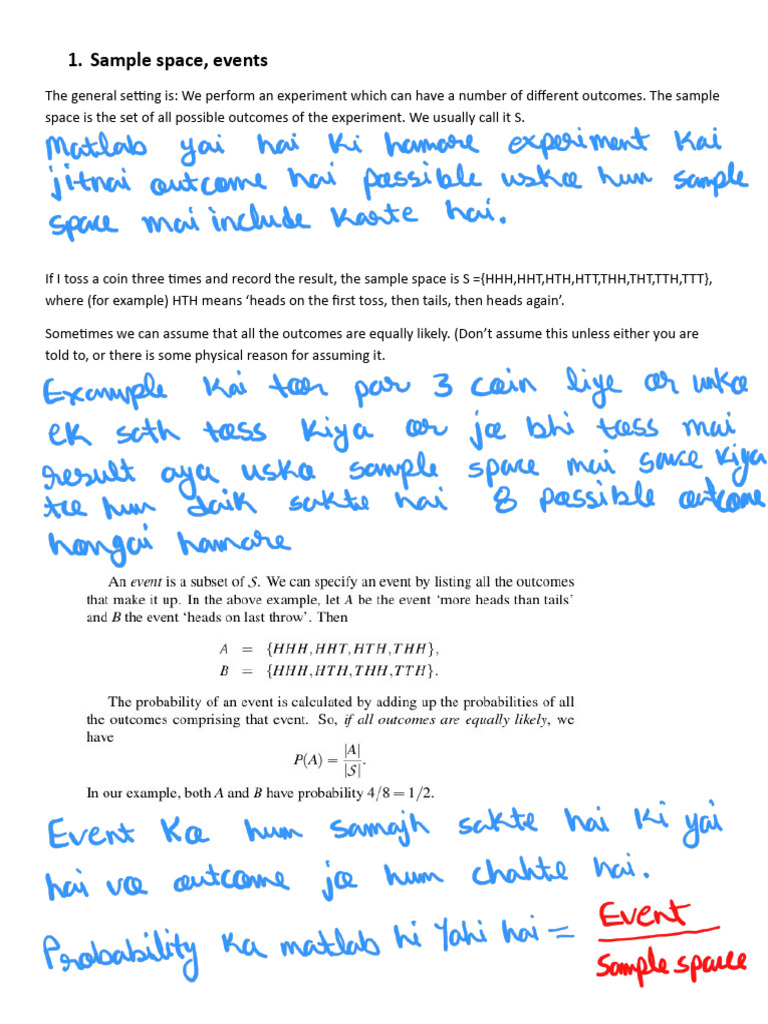 1. Sample space, events
The general setting is: We perform an experiment which can have a number of different outcomes. The sample
space is the set of all possible outcomes of the experiment. We usually call it S.
Matlab yai hai ki hamare experiment kai
jitnai outcome hai possible usko hum sample
space mai include karte hai.
If I toss a coin three times and record the result, the sample space is S ={HHH,HHT,HTH,HTT,THH,THT,TTH,TTT},
where (for example) HTH means ‘heads on the first toss, then tails, then heads again’.
Sometimes we can assume that all the outcomes are equally likely. (Don’t assume this unless either you are
told to, or there is some physical reason for assuming it.
Example kai toor par 3 coin liye or unko
ek sath toss kiya or jo bhi toss mai
result aya usko sample space mai save kiya
too hum daik sakte hai 8 possible outcome
hongai hamare
An event is a subset of S. We can specify an event by listing all the outcomes
that make it up. In the above example, let A be the event ‘more heads than tails’
and B the event ‘heads on last throw’. Then
A = {HHH,HHT,HTH,THH},
B = {HHH,HTH,THH,TTH}.
The probability of an event is calculated by adding up the probabilities of all
the outcomes comprising that event. So, if all outcomes are equally likely, we
have
P(A) = |A| / |S|.
In our example, both A and B have probability 4/8 = 1/2.
Event Ko hum samajh sakte hai ki yai
hai vo outcome jo hum chahte hai.
Probability ka matlab hi yahi hai = Event / Sample space